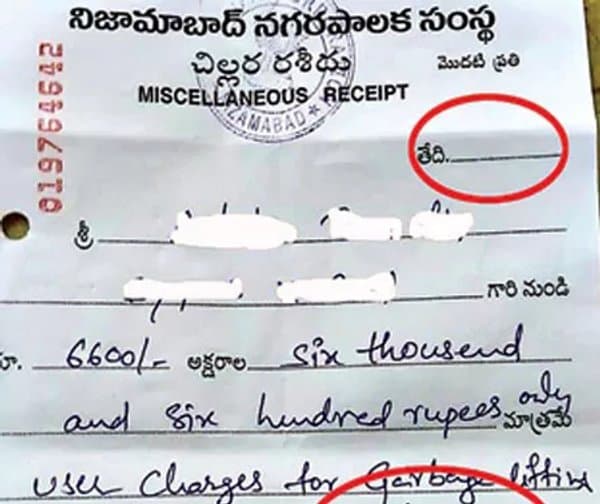 నిజామాబాద్ నగరపాలక సంస్థ
చిల్లర రశీదు మొదటి ప్రతి
MISCELLANEOUS RECEIPT
ZAMABAD
019764642
తేది.
శ్రీ
గారి నుండి
రూ. 6600/- అక్షరాల Six thousend
and six hundred rupees only మాత్రమే
user charges for Garbage lifting